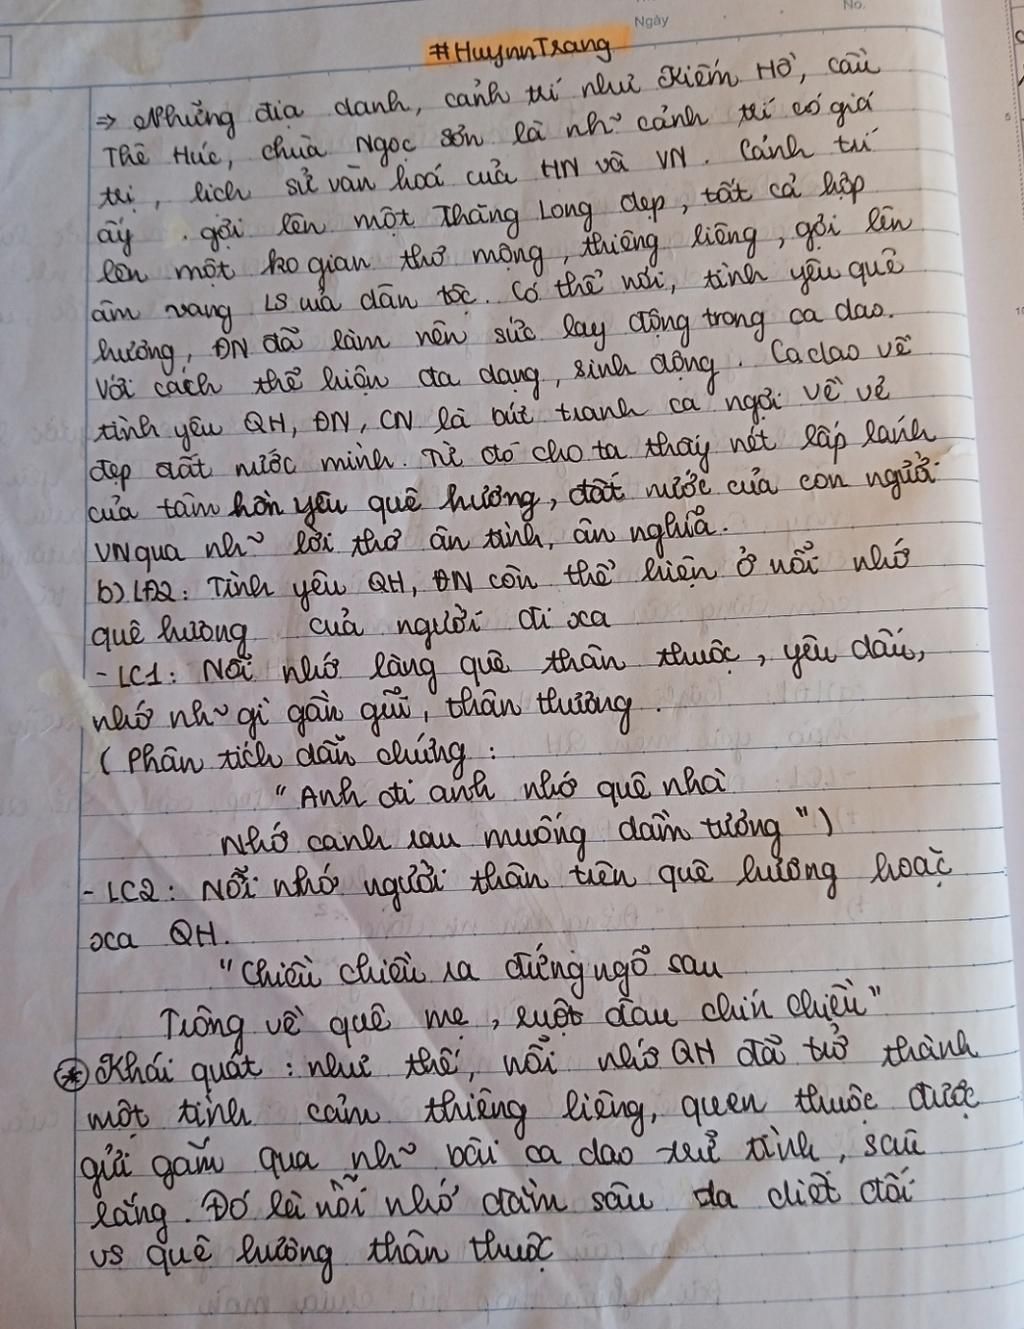 Ngày
No.
#HuynnTrang
⇒ Những địa danh, cảnh trí như Kiếm Hồ, cầu
Thê Húc, chùa Ngọc Sơn là nh~ cảnh trí có giá
trị, lịch sử văn hoá của HN và VN. Cảnh trí
ấy . gợi lên một Thăng Long đẹp, tất cả hợp
lên một ko gian thơ mộng, thiêng liêng, gợi lên
âm vang LS của dân tộc. Có thể nói, tình yêu quê
hương, ĐN đã làm nên sức lay động trong ca dao.
Với cách thể hiện đa dạng, sinh động. Ca dao về
tình yêu QH, ĐN, CN là bức tranh ca ngợi về vẻ
đẹp đất nước mình. Từ đó cho ta thấy nét lấp lánh
của tâm hồn yêu quê hương, đất nước của con người
VN qua nh~ lời thơ ân tình, ân nghĩa.
b) LĐ2: Tình yêu QH, ĐN còn thể hiện ở nỗi nhớ
quê hương của người đi xa
- LC1: Nỗi nhớ làng quê thân thuộc, yêu dấu,
nhớ nh~ gì gần gũi, thân thương.
( Phân tích dẫn chứng :
" Anh đi anh nhớ quê nhà
Nhớ canh rau muống dầm tương ")
- LC2: Nỗi nhớ người thân trên quê hương hoặc
xa QH.
"Chiều chiều ra đứng ngõ sau
Trông về quê mẹ, ruột đau chín chiều"
* Khái quát : như thế, nỗi nhớ QH đã trở thành
một tình cảm thiêng liêng, quen thuộc được
gửi gắm qua nh~ bài ca dao trữ tình, sâu
lắng. Đó là nỗi nhớ đằm sâu da diết đối
vs quê hương thân thuộc